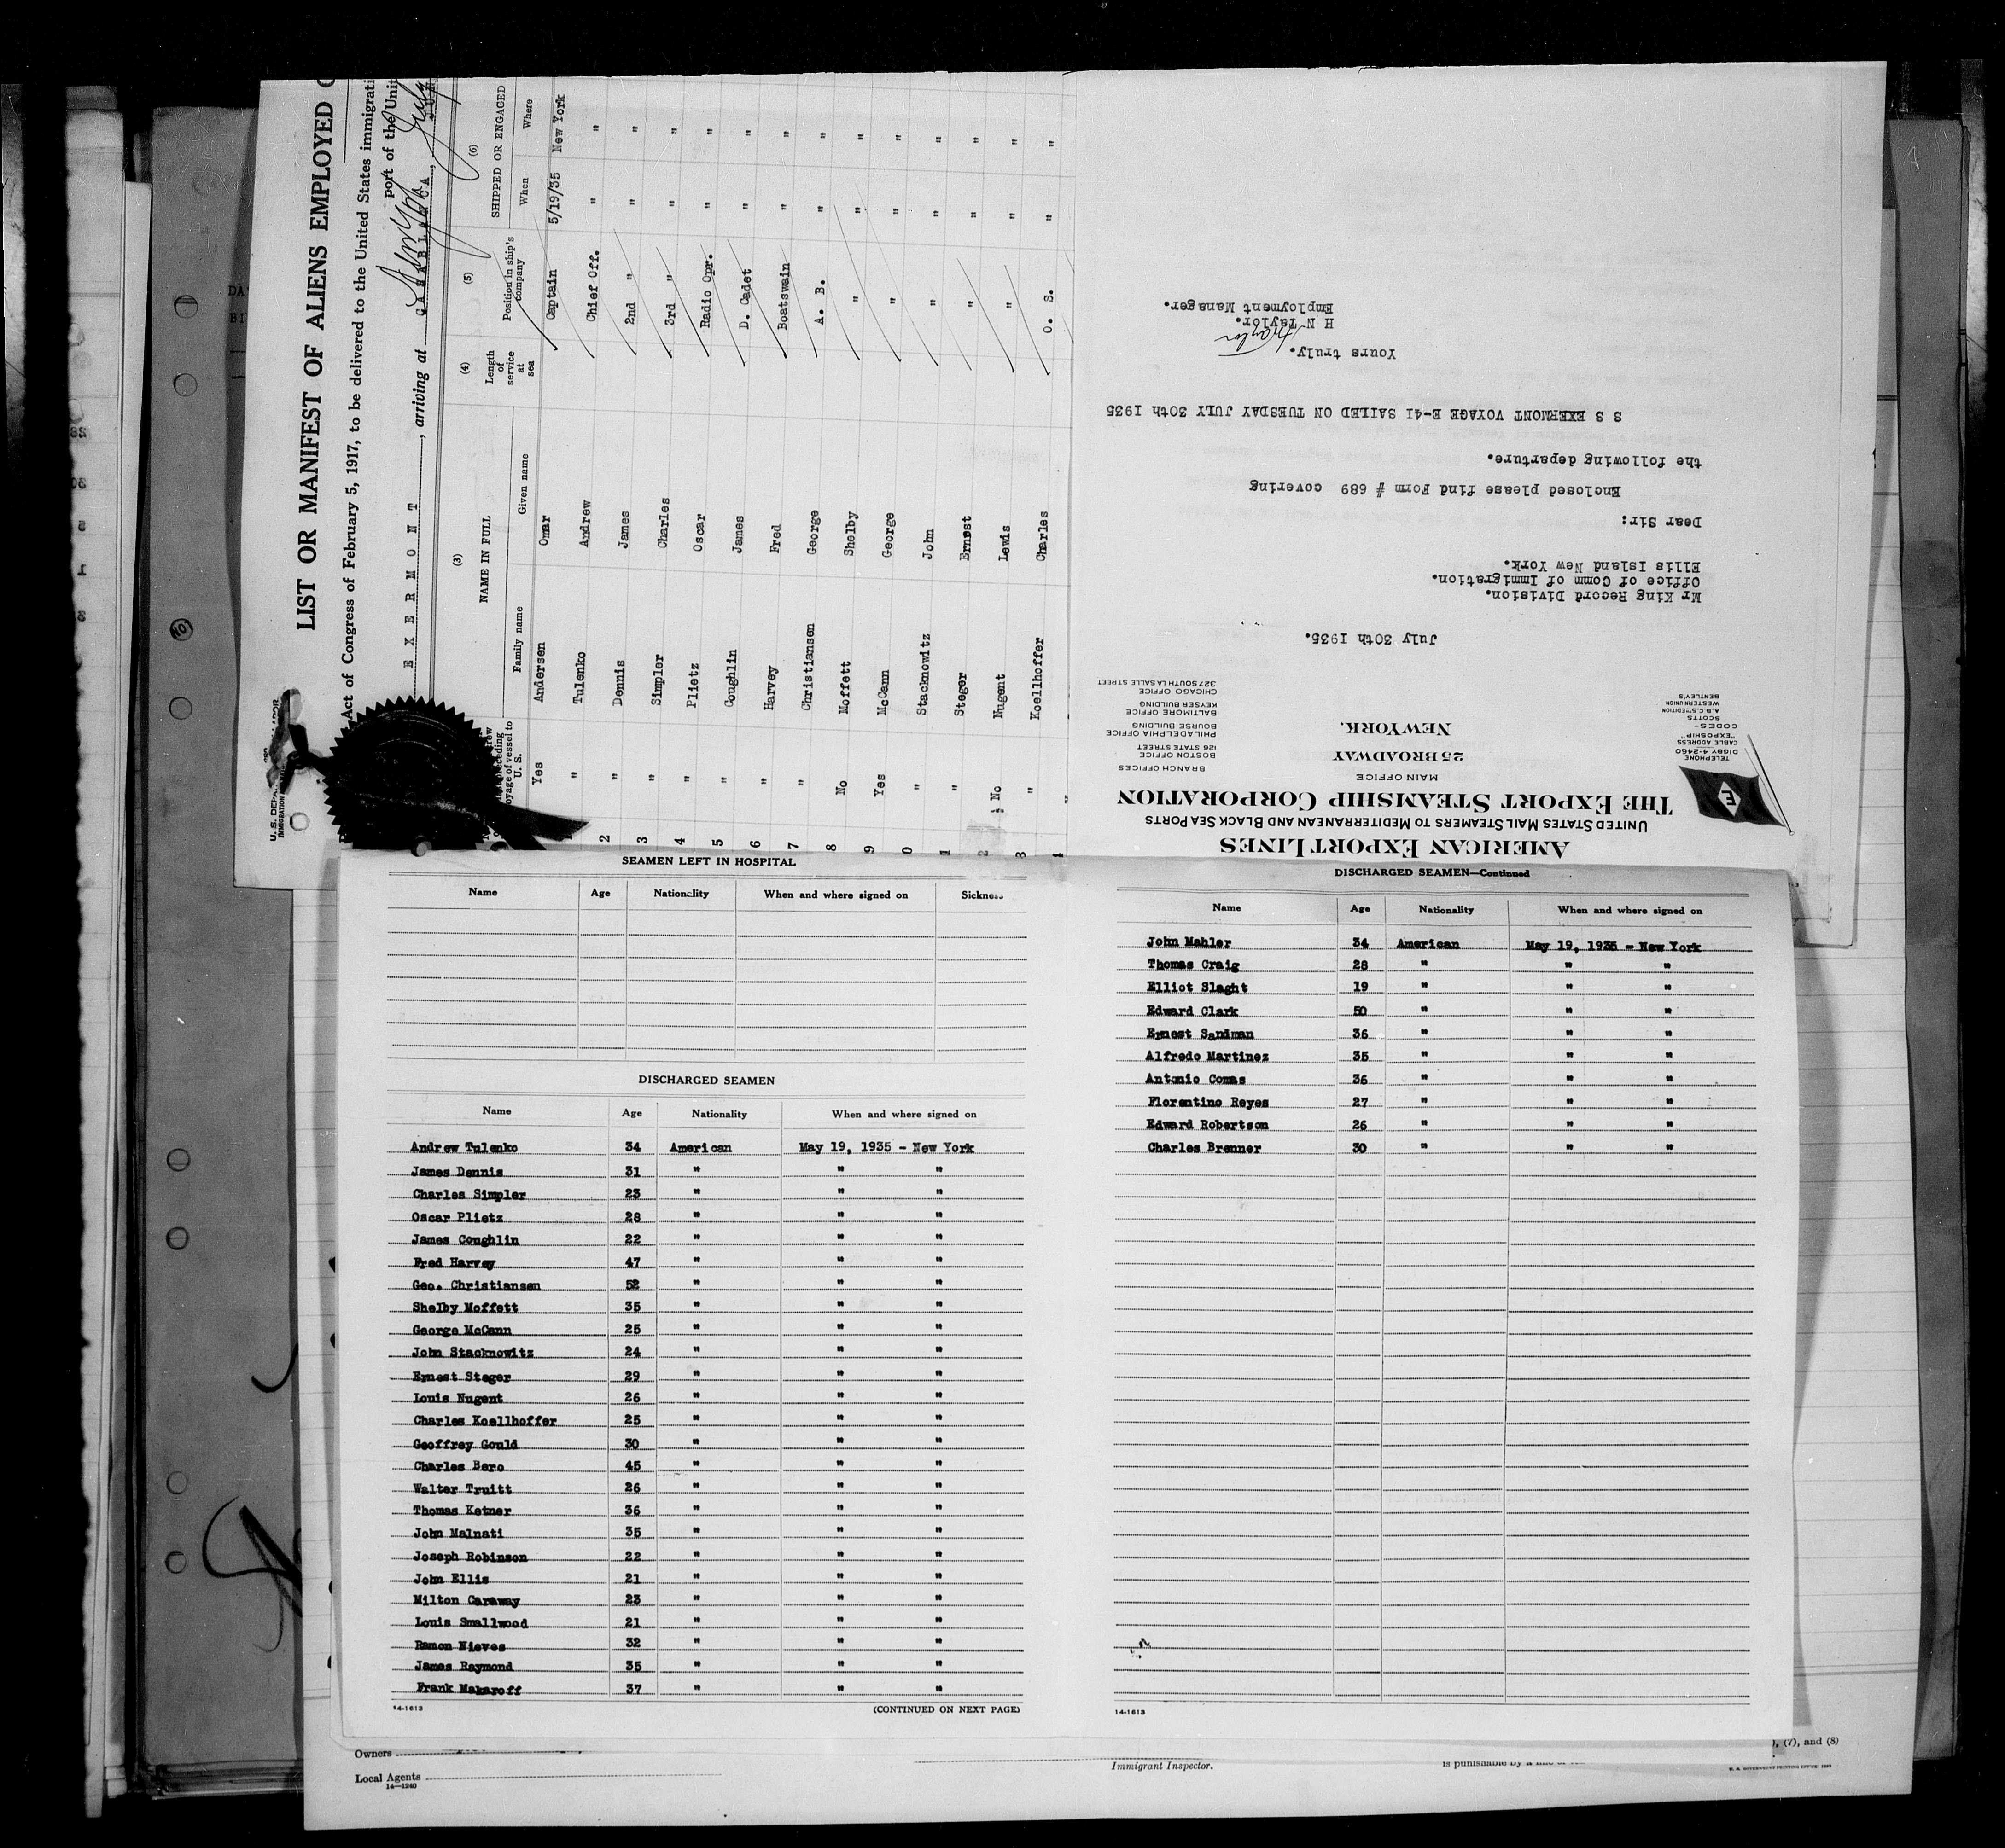 LIST OR MANIFEST OF ALIENS EMPLOYED
Act of Congress of February 5, 1917, to be delivered to the United States immigrati
port of the Unit
E X E R M O N T , arriving at CASABLANCA, July
(3) (4) (5) (6)
NAME IN FULL Length of service at sea Position in ship's company SHIPPED OR ENGAGED
Family name Given name When Where
preceding voyage of vessel to U. S.
Yes Andersen Omar Captain 5/19/35 New York
2 " Tulenko Andrew Chief Off. " "
3 " Dennis James 2nd " " "
4 " Simpler Charles 3rd " " "
5 " Plietz Oscar Radio Opr. " "
6 " Coughlin James D. Cadet " "
7 " Harvey Fred Boatswain " "
8 " Christiansen George A. B. " "
9 No Moffett Shelby " " "
0 Yes McCann George " " "
1 " Stacknowitz John " " "
2 " Steger Ernest " " "
3 No Nugent Lewis " " "
4 " Koellhoffer Charles O. S. " "
AMERICAN EXPORT LINES
UNITED STATES MAIL STEAMERS TO MEDITERRANEAN AND BLACK SEA PORTS
THE EXPORT STEAMSHIP CORPORATION
MAIN OFFICE
25 BROADWAY
NEW YORK.
TELEPHONE
DIGBY 4-2460
CABLE ADDRESS
"EXPOSHIP"
-CODES-
SCOTTS
A.B.C. 5TH EDITION
WESTERN UNION
BENTLEY'S
BRANCH OFFICES
BOSTON OFFICE
126 STATE STREET
PHILADELPHIA OFFICE
BOURSE BUILDING
BALTIMORE OFFICE
KEYSER BUILDING
CHICAGO OFFICE
327 SOUTH LA SALLE STREET
July 30th 1935.
Mr King Record Division.
Office of Comm of Immigration.
Ellis Island New York.
Dear Sir:
Enclosed please find Form # 689 covering
the following departure.
S S EXERMONT VOYAGE E-41 SAILED ON TUESDAY JULY 30th 1935
Yours truly.
H N Taylor.
Employment Manager.
SEAMEN LEFT IN HOSPITAL
Name Age Nationality When and where signed on Sickness
DISCHARGED SEAMEN
Name Age Nationality When and where signed on
Andrew Tulenko 34 American May 19, 1935 - New York
James Dennis 31 " " "
Charles Simpler 23 " " "
Oscar Plietz 28 " " "
James Coughlin 22 " " "
Fred Harvey 47 " " "
Geo. Christiansen 52 " " "
Shelby Moffett 35 " " "
George McCann 25 " " "
John Stacknowitz 24 " " "
Ernest Steger 29 " " "
Louis Nugent 26 " " "
Charles Koellhoffer 25 " " "
Geoffrey Gould 30 " " "
Charles Bero 45 " " "
Walter Truitt 26 " " "
Thomas Ketner 36 " " "
John Malnati 35 " " "
Joseph Robinson 22 " " "
John Ellis 21 " " "
Milton Caraway 23 " " "
Louis Smallwood 21 " " "
Ramon Nieves 32 " " "
James Raymond 35 " " "
Frank Makaroff 37 " " "
14-1613 (CONTINUED ON NEXT PAGE)
DISCHARGED SEAMEN—Continued
Name Age Nationality When and where signed on
John Mahler 34 American May 19, 1935 - New York
Thomas Craig 28 " " "
Elliot Slaght 19 " " "
Edward Clark 50 " " "
Ernest Sandman 36 " " "
Alfredo Martinez 35 " " "
Antonio Comas 36 " " "
Florentino Reyes 27 " " "
Edward Robertson 26 " " "
Charles Brenner 30 " " "
14-1613
Owners
Local Agents
14-1240
Immigrant Inspector.
(7), and (8)
is punishable by a